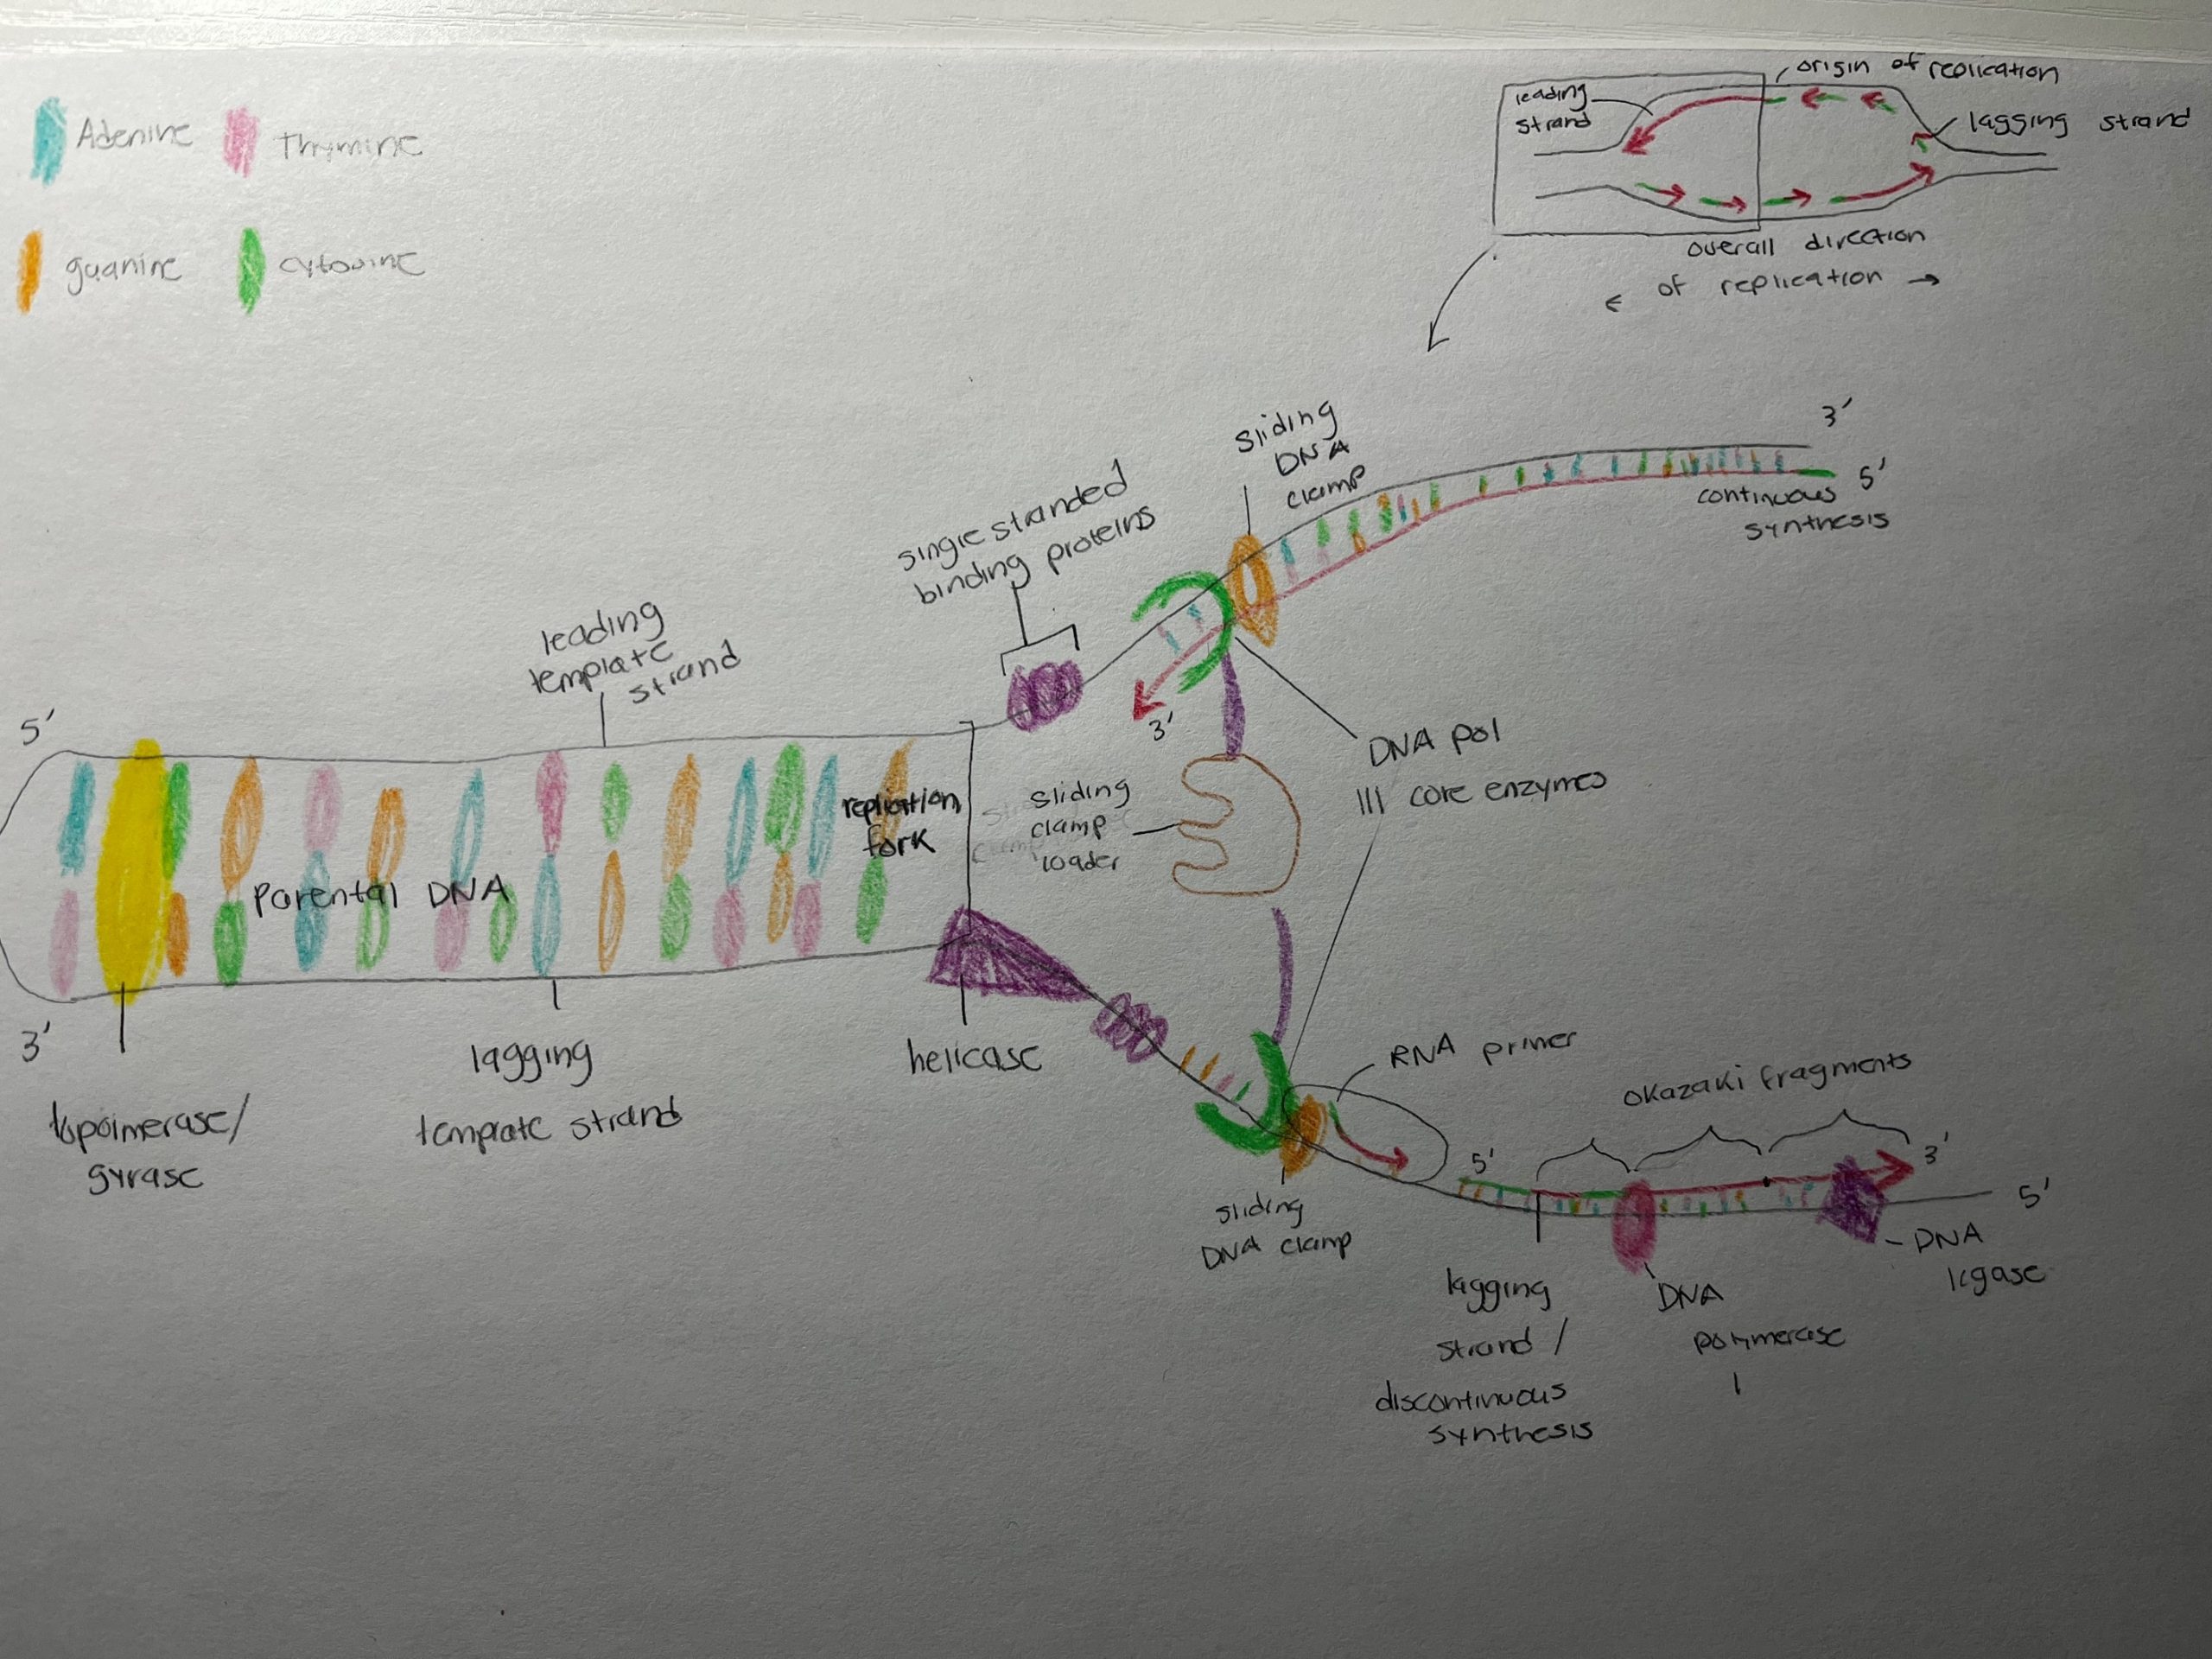 Adenine
Thymine
guanine
cytosine
origin of replication
leading
strand
lagging strand
overall direction
← of replication →
3'
5'
continuous
synthesis
sliding
DNA
clamp
single stranded
binding proteins
leading
template
strand
5'
3'
DNA pol
III core enzymes
sliding
clamp
loader
replication
fork
Parental DNA
3'
topoimerase/
gyrase
lagging
template strand
helicase
RNA primer
okazaki fragments
5'
3'
5'
sliding
DNA clamp
lagging
strand /
discontinuous
synthesis
DNA
polymerase
I
DNA
ligase